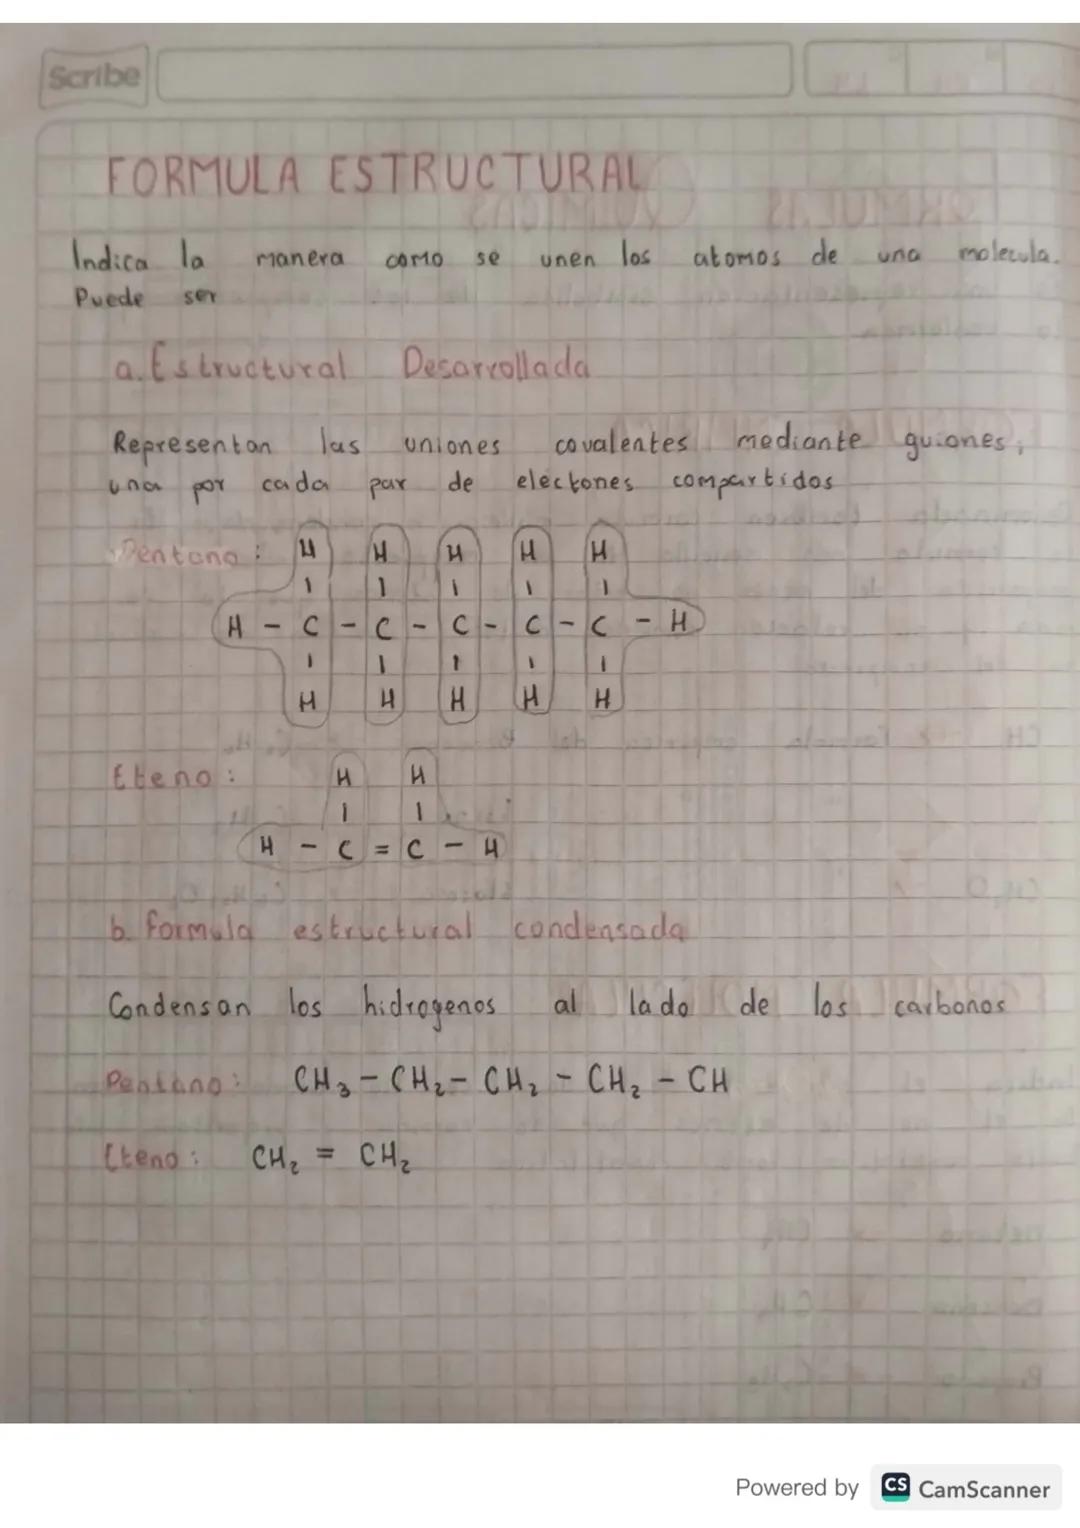 Scribe
FORMULA ESTRUCTURAL
Indica la manera como se unen los atomos de una molecula.
Puede ser
a. Estructural Desarrollada
Representan las uniones covalentes mediante guiones,
una por cada par de electones compartidos
Pentano: H H H H H
H - C - C - C - C - C - H
H H H H H
Eteno: H H
H - C = C - H
b. formula estructural condensada
Condensan los hidrogenos al lado de los carbonos
Pentano: CH₃ - CH₂ - CH₂ - CH₂ - CH
Eteno: CH₂ = CH₂
Powered by CS CamScanner